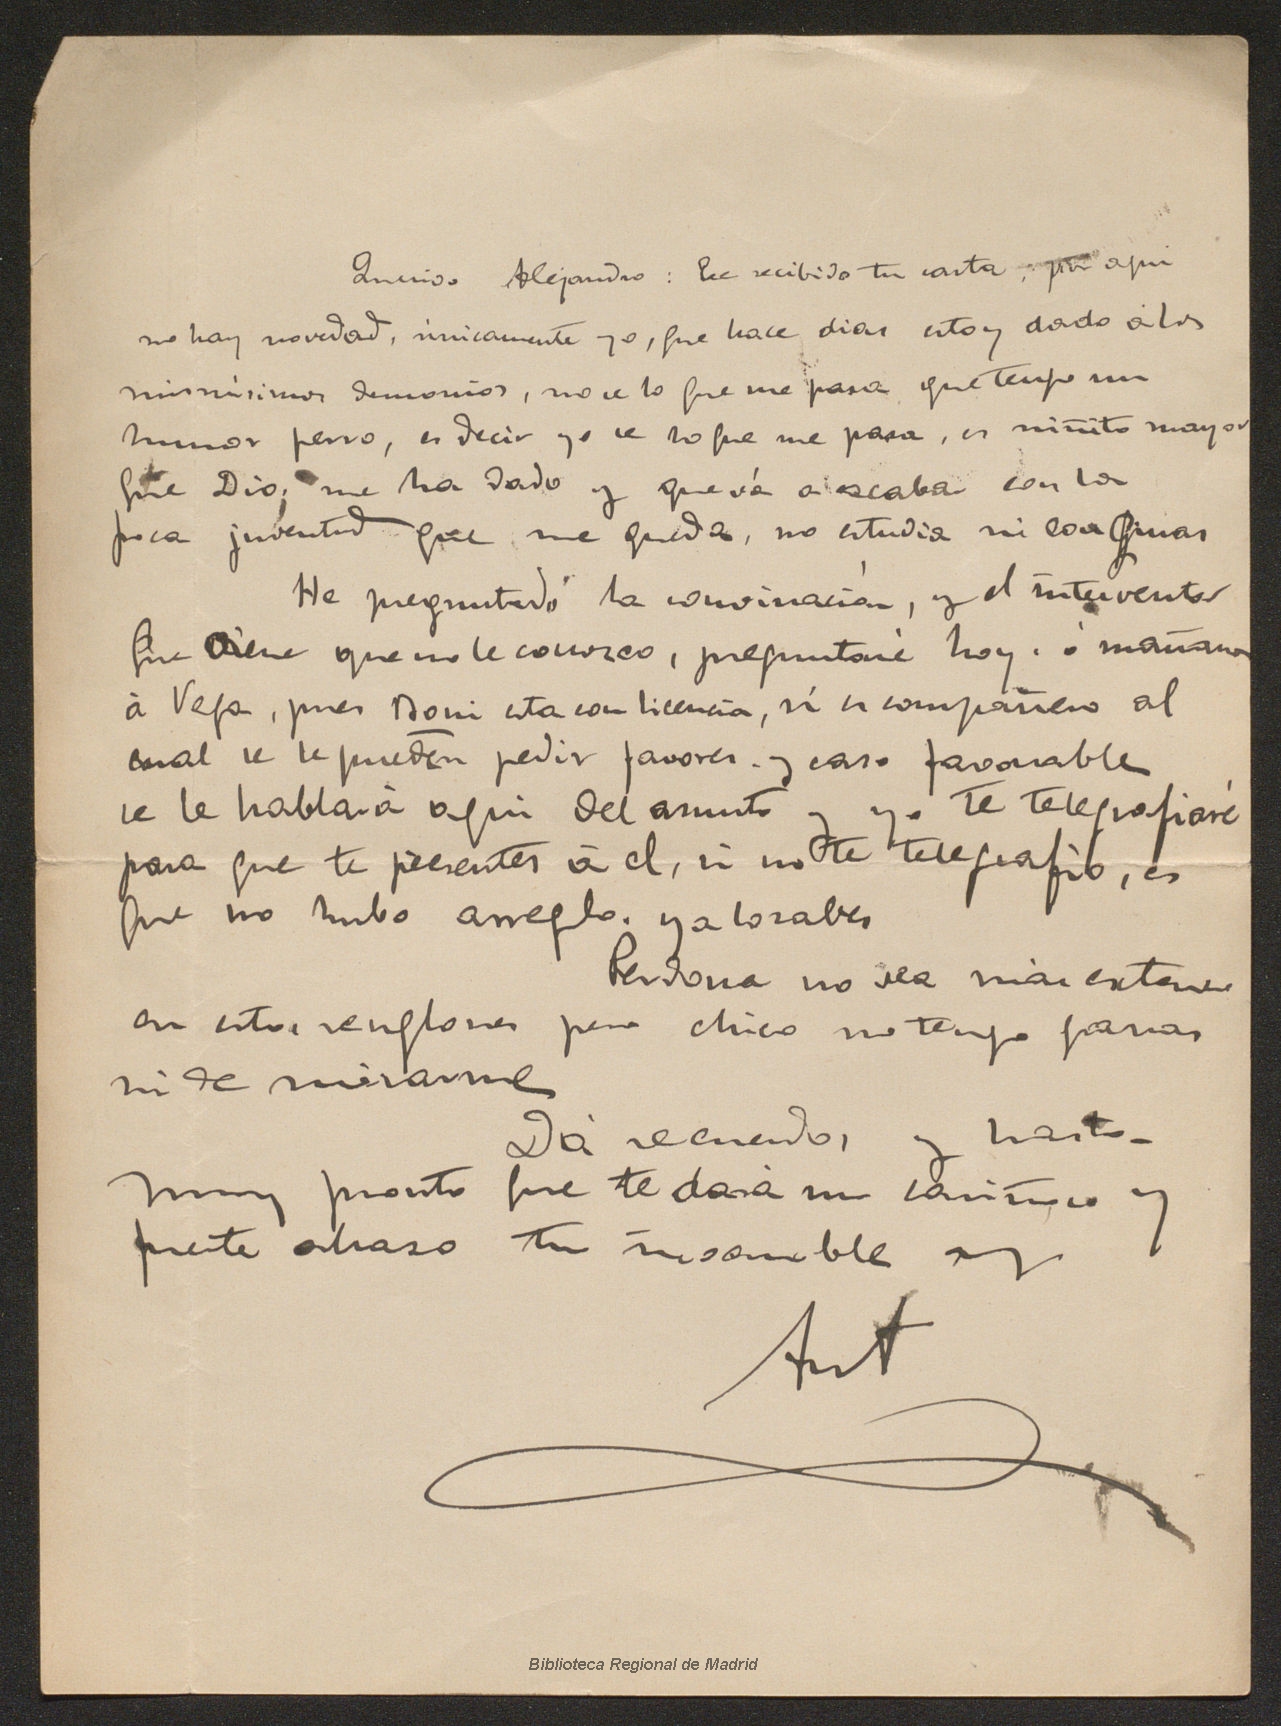 Querido Alejandro: He recibido tu carta, por aqui
no hay novedad, únicamente yo, que hace dias estoy dado á los
mismisimos demonios, no se lo que me pasa que tengo un
humor perro, es decir yo se lo que me pasa, es niñito mayor
que Dios me ha dado y que vá a acabar con la
poca juventud que me queda, no estudia ni con ganas
He preguntado la convinación, y el interventor
que viene que no le conozco, preguntaré hoy ó mañana
á Vega, pues esta con licencia, si es compañero al
cual se le pueden pedir favores. y caso favorable
se le hablará aqui del asunto y yo te telegrafiaré
para que te presentes á el, si no te telegrafio, es
que no hubo arreglo. ya lo sabes
Perdona no sea más extenso
en estos renglones pero chico no tengo ganas
ni de mirarme
Dá recuerdos y hasta
muy pronto que te dará un cariñoso y
fuerte abrazo tu
Ant
Biblioteca Regional de Madrid